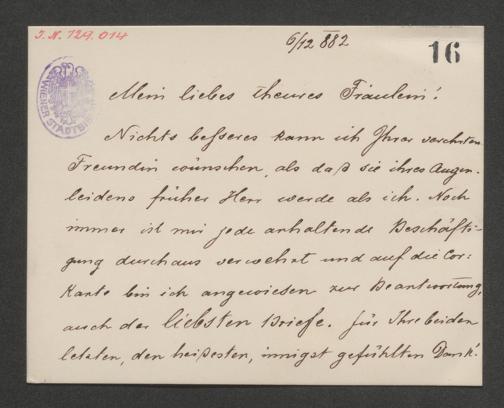 J. N. 129.014
6/12 882
16
WIENER STADTBI
Mein liebes theures Fräulein!
Nichts beßeres kann ich Ihrer verehrten
Freundin wünschen, als daß sie ihres Augen-
leidens früher Herr werde als ich. Noch
immer ist mir jede anhaltende Beschäfti-
gung durchaus verwehrt und auf die Cor:
Karte bin ich angewiesen zur Beantwortung,
auch der liebsten Briefe. für Ihre beiden
letzten, den heißesten, innigst gefühlten Dank!